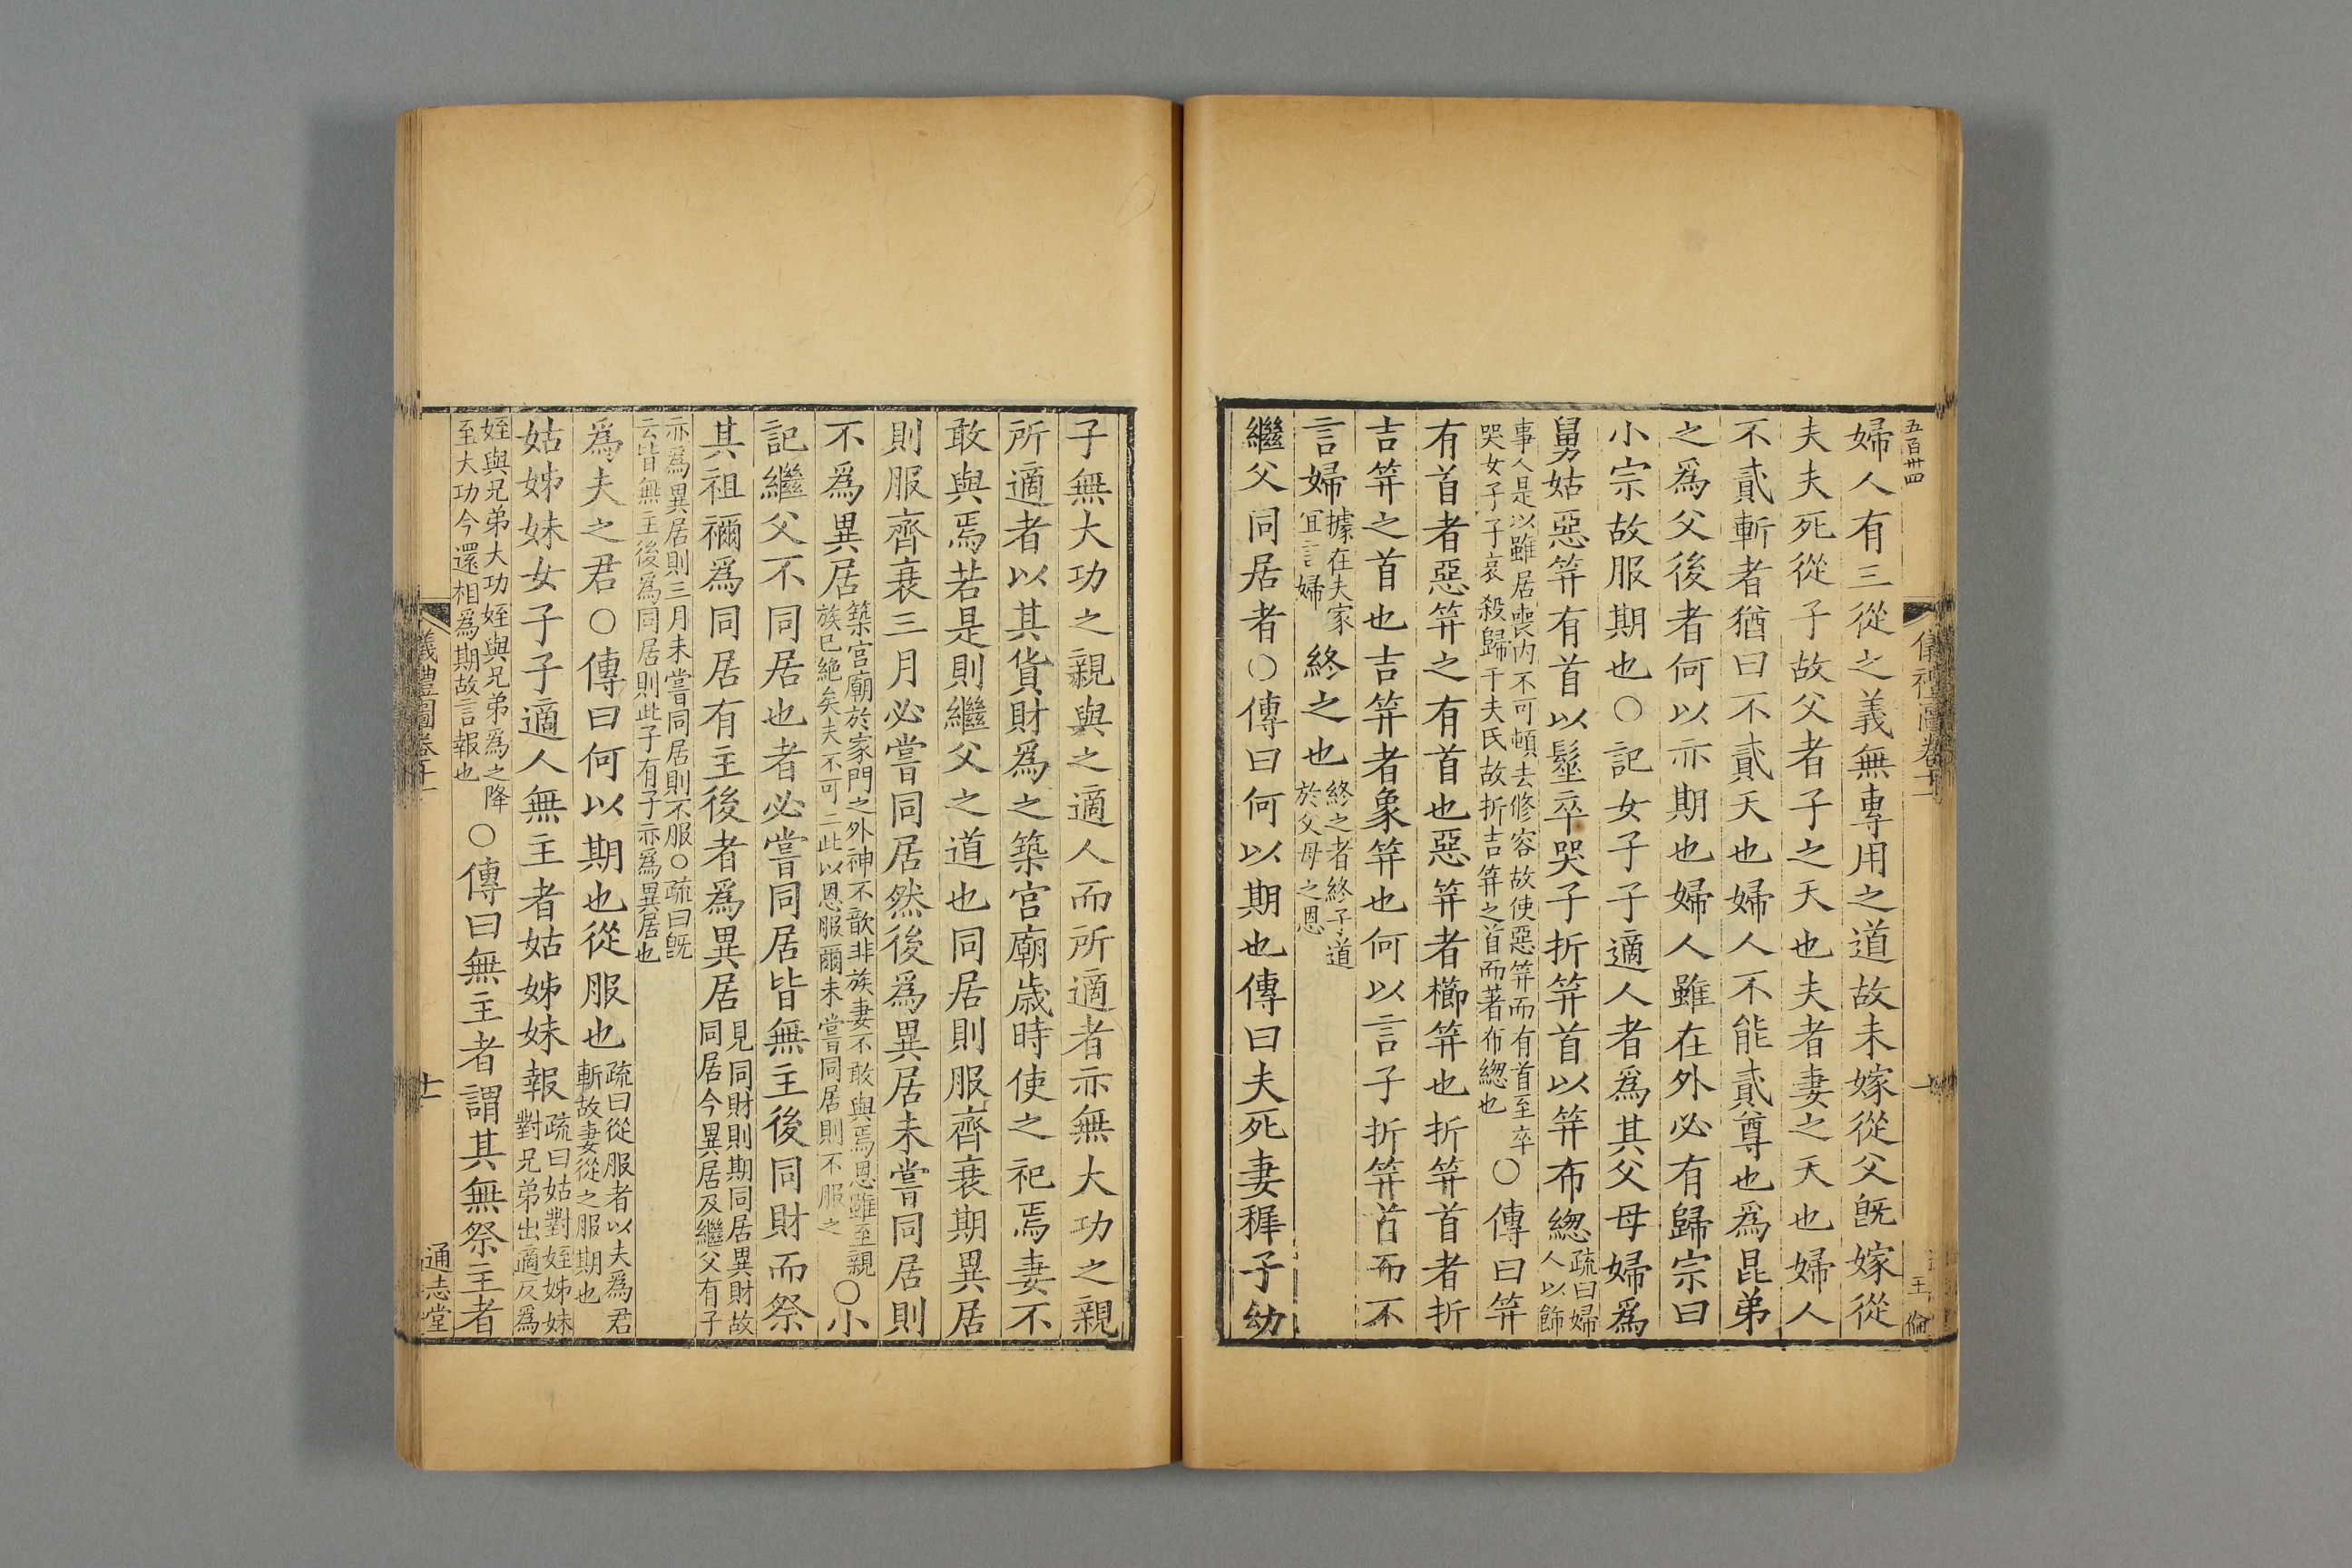 五百卌四
婦人有三從之義無專用之道故未嫁從父旣嫁從
夫夫死從子故父者子之天也夫者妻之天也婦人
不貳斬者猶曰不貳天也婦人不能貳尊也爲昆弟
之爲父後者何以亦期也婦人雖在外必有歸宗曰
小宗故服期也○記女子子適人者爲其父母婦爲
舅姑惡笄有首以髽卒哭子折笄首以笄布緫疏曰婦人以飾
事人是以雖居喪内不可頓去修容故使惡笄而有首至卒
哭女子子哀殺歸于夫氏故折吉笄之首而著布緫也○傳曰笄
有首者惡笄之有首也惡笄者櫛笄也折笄首者折
吉笄之首也吉笄者象笄也何以言子折笄首而不
言婦據在夫家冝言婦終之也終之者終子道於父母之恩
繼父同居者○傳曰何以期也傳曰夫死妻穉子幼
王倫
子無大功之親與之適人而所適者亦無大功之親
所適者以其貨財爲之築宮廟歲時使之祀焉妻不
敢與焉若是則繼父之道也同居則服齊衰期異居
則服齊衰三月必嘗同居然後爲異居未嘗同居則
不爲異居築宮廟於家門之外神不歆非族妻不敢與焉恩雖至親族已絶矣夫不可二此以恩服爾未嘗同居則不服之○小
記繼父不同居也者必嘗同居皆無主後同財而祭
其祖禰爲同居有主後者爲異居見同財則期同居異財故同居今異居及繼父有子
亦爲異居則三月未嘗同居則不服○疏曰旣
云皆無主後爲同居則此子有子亦爲異居也
爲夫之君○傳曰何以期也從服也疏曰從服者以夫爲君斬故妻從之服期也
姑姊妹女子子適人無主者姑姊妹報疏曰姑對姪姊妹對兄弟出適反爲
姪與兄弟大功姪與兄弟爲之降
至大功今還相爲期故言報也○傳曰無主者謂其無祭主者
儀禮圖卷十一
十一
通志堂